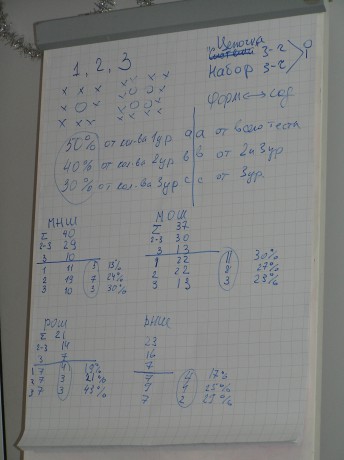 Цепочка
1, 2, 3
3-г
Набор 3-г
х х х
х О х
х х х
форм ↔ сод
50% от кол-ва 1ур а
40% от кол-ва 2ур в
30% от кол-ва 3ур с
а от всего теста
в от 2и3ур
с от 3ур.
МНШ
Σ 40
2-3 29
3 10
1 11 3
2 19 7 24%
3 10 3 30%
МОШ
Σ 37
2-3 30
3 13
1 22 11 30%
2 22 8 27%
3 13 3 23%
РОШ
Σ 21
2-3 14
3 7
1 7 4 19%
2 7 3 21%
3 7 3 43%
РНШ
23
16
7
7 4 17%
9 4 25%
7 2 29%